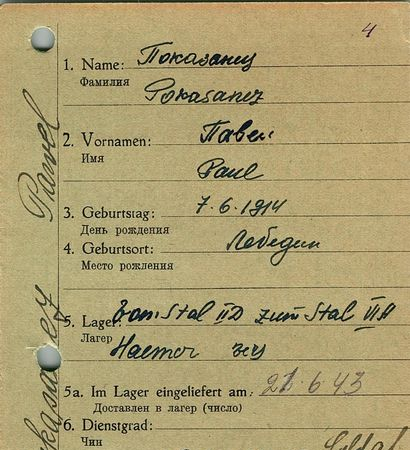 4
1. Name: Показанец
Фамилия
Pokasanez
2. Vornamen: Павел
Имя
Paul
3. Geburtstag: 7.6.1914
День рождения
4. Geburtsort: Лебедин
Место рожления
5. Lager: vom Stal II D zum Stal VI A
Лагер
5a. Im Lager eingeliefert am: 21.6.43
Доставлен в лагер (число)
6. Dienstgrad: Soldat
Чин
Pokasanez Pawel